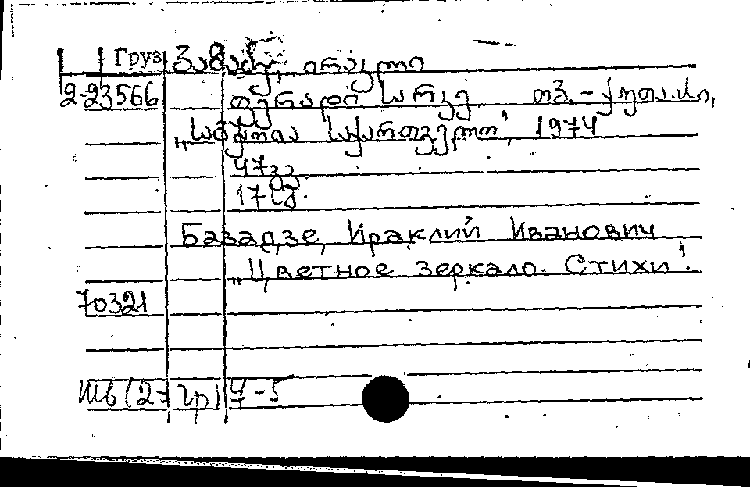 Груз ბაზაძე, ირაკლი
2-23566 ფერადი სარკე. თბ. – ქუთაისი,
„საბჭოთა საქართველო", 1974
47გვ.
Базадзе, Ираклий Иванович
„Цветное зеркало. Стихи".
70321
Шб(2=Гр)7-5